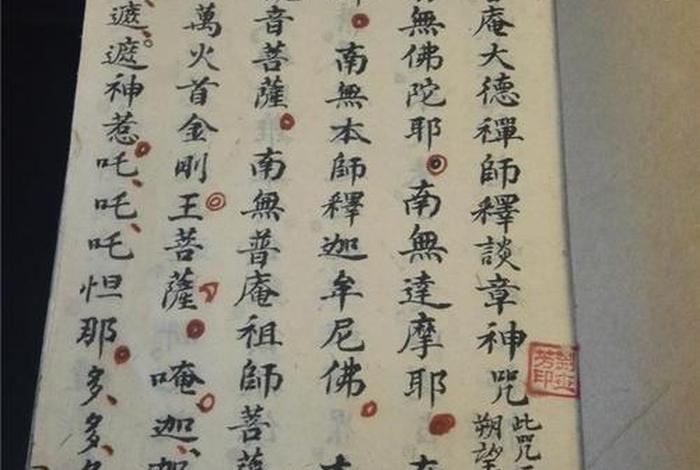 庵大德禪師釋談章神咒
此咒
朔望
南無佛陀耶 南無達摩耶
南無本師釋迦牟尼佛
音菩薩 南無普庵祖師菩薩
萬火首金剛王菩薩 唵迦
遮遮神惹吒吒吒怛那多多
芳印